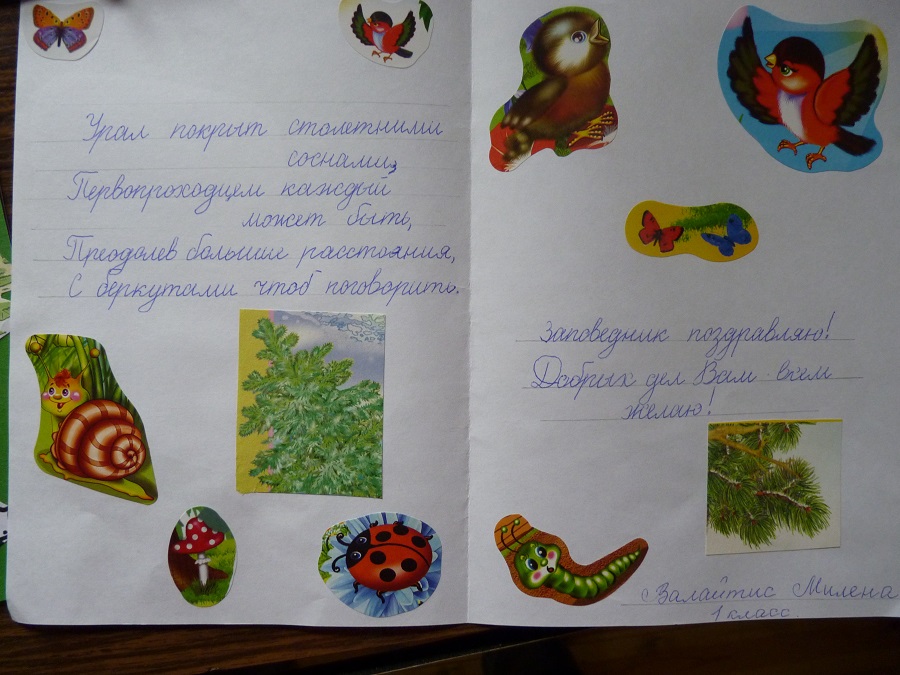 Урал покрыт столетними
соснами,
Первопроходцем каждый
может быть,
Преодолев большие расстояния,
С беркутами чтоб поговорить.
Заповедник поздравляю!
Добрых дел Вам всем
желаю!
Валайтис Милена
1 класс.